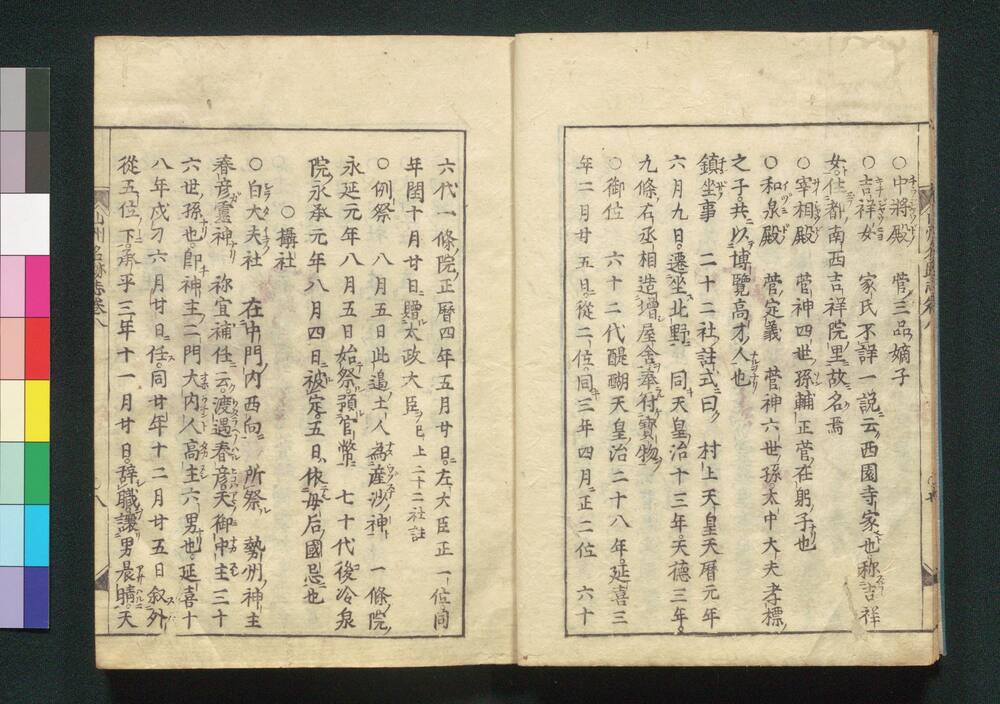 ○中將殿　菅三品ノ嫡子
○吉祥女　家氏不詳一說云西園寺家也称吉祥
女仕都南西吉祥院里故名焉
○宰相殿　菅神四世孫輔正菅在躬子也
○和泉殿　菅定義　菅神六世孫太中大夫孝標
之子共以博覽高才人也
鎮坐事　二十二社註式曰　村上天皇天曆元年
六月九日遷坐北野　同天皇治十三年天德三年
九條右丞相造增屋舍奉付寶物
○御位　六十二代醍醐天皇治二十八年延喜三
年二月廿五日從二位同三年四月正二位　六十
六代一條院正曆四年五月廿日左大臣正一位同
年閏十月廿日贈太政大臣已上二十二社註
○例祭　八月五日此邉土人為産沙神　一條院
永延元年八月五日始祭預官幣　七十代後冷泉
院永承元年八月四日被定五日依母后國忌也
○攝社
○白大夫社　在中門内西向　所祭　勢州神主
春彦靈神　祢宜補任云渡遇春彦天御中主三十
六世孫也即神主二門大内人高主六男也延喜十
八年戊刁六月廿日任同廿年十二月廿五日叙外
從五位下承平三年十一月廿日辞職讓男晨晴天
山州名跡志卷八
八